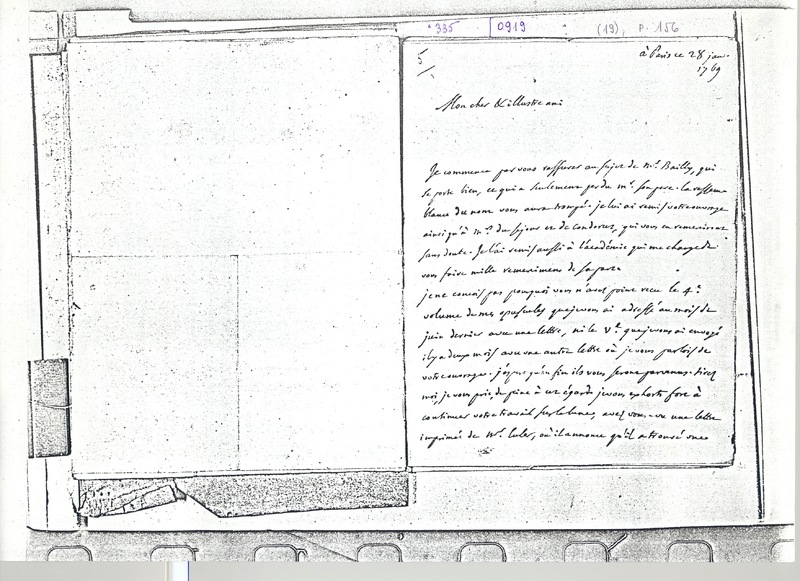 335 0919 (19), p. 156
5
à Paris ce 28 janv.
1769
Mon cher & illustre ami
Je commence par vous rassurer au sujet de Mr. Bailly, qui
se porte bien, ce qui a seulement perdu mr. son père. la ressem
blance du nom vous aura trompé. je lui ai remis votre ouvrage
ainsi qu'à Mrs. du sejour et de condorcet, qui vous en remercieront
sans doute. Je l'ai remis aussi à l'académie qui me charge de
vous faire mille remerciemens de sa part.
je ne conçois pas pourquoi vous n'avez point reçu le 4e.
volume de mes opuscules que je vous ai adressé au mois de
juin dernier avec une lettre, ni le Ve. que je vous ai envoyé
il y a deux mois avec une autre lettre où je vous parlois de
votre ouvrage. j'espère qu'enfin ils vous seront parvenus. tirez
moi, je vous prie, de peine à cet égard. je vous exhorte fort à
continuer votre travail sur la lune, avez vous vu une lettre
imprimée de Mr. Euler, où il annonce qu'il a trouvé une